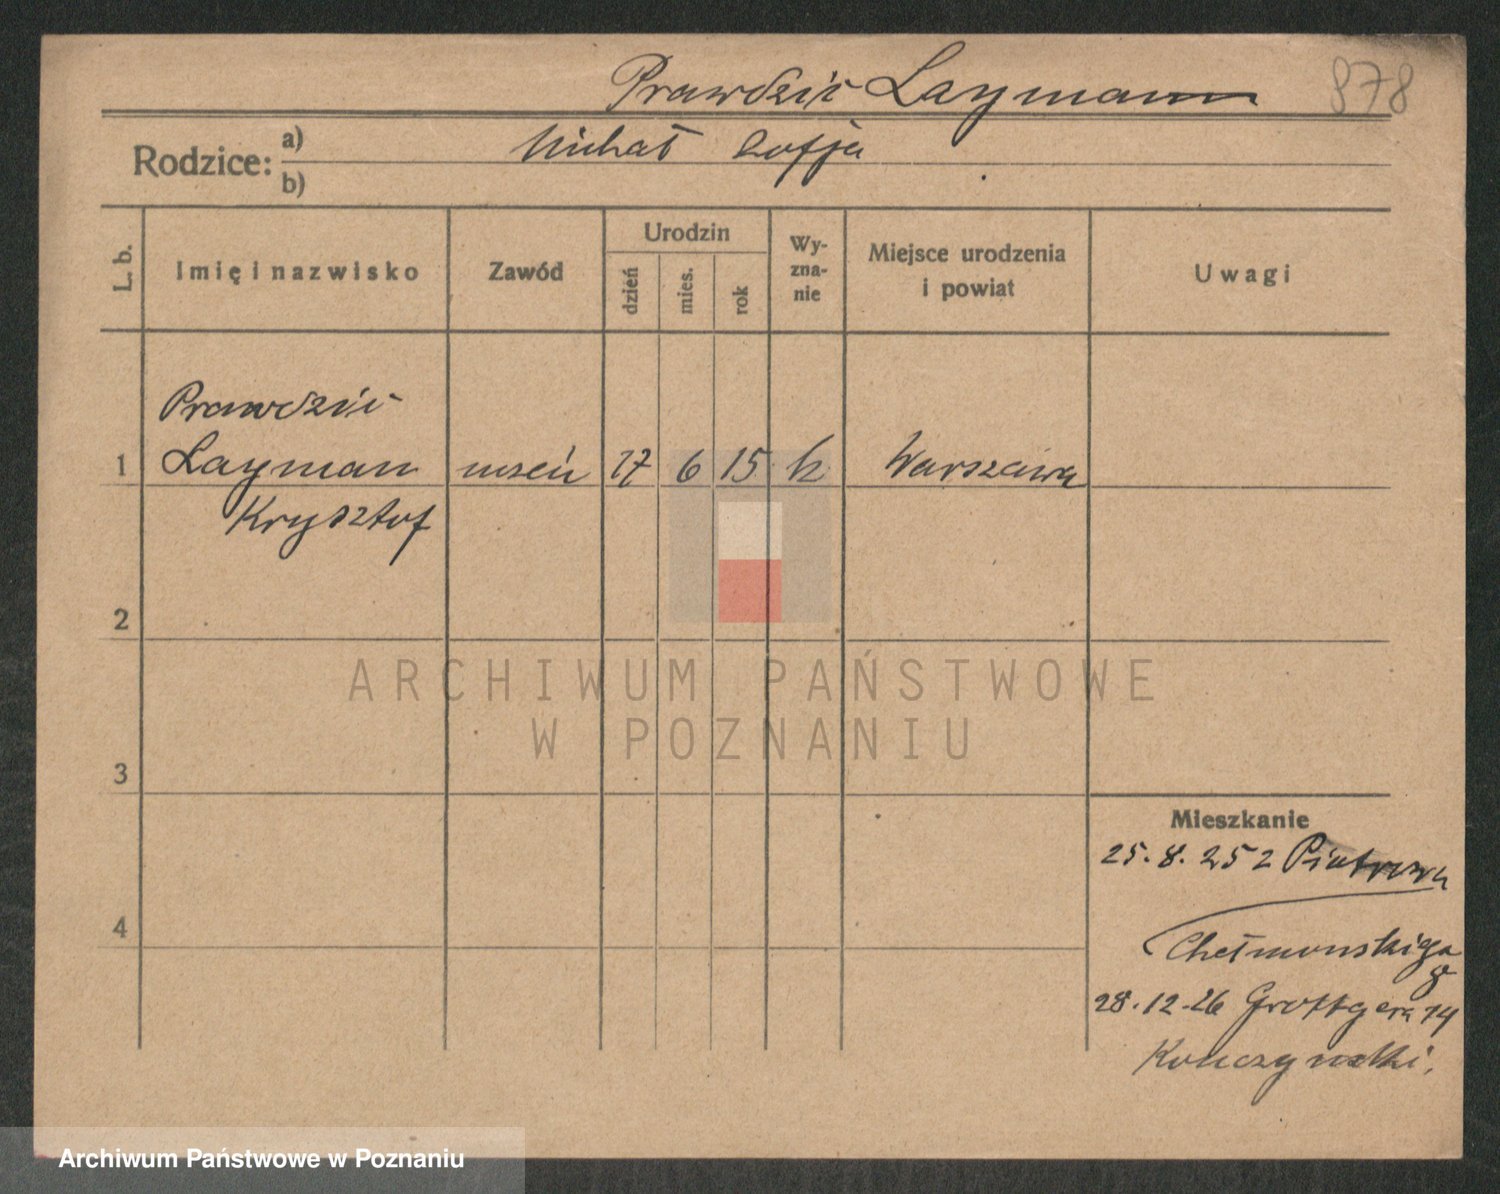 Prawdzic Laymann
878
Rodzice: a) Michał Zofja
b)
L. b.
Imię i nazwisko
Zawód
Urodzin
dzień
mies.
rok
Wy-
zna-
nie
Miejsce urodzenia
i powiat
Uwagi
Prawdzic
1 Layman uczeń 17 6 15 k Warszawa
Krysztof
2
3
4
ARCHIWUM PAŃSTWOWE
W POZNANIU
Mieszkanie
25.8.25 z
Chełmonskiego
8
28.12.26 Grottgera 14
Archiwum Państwowe w Poznaniu